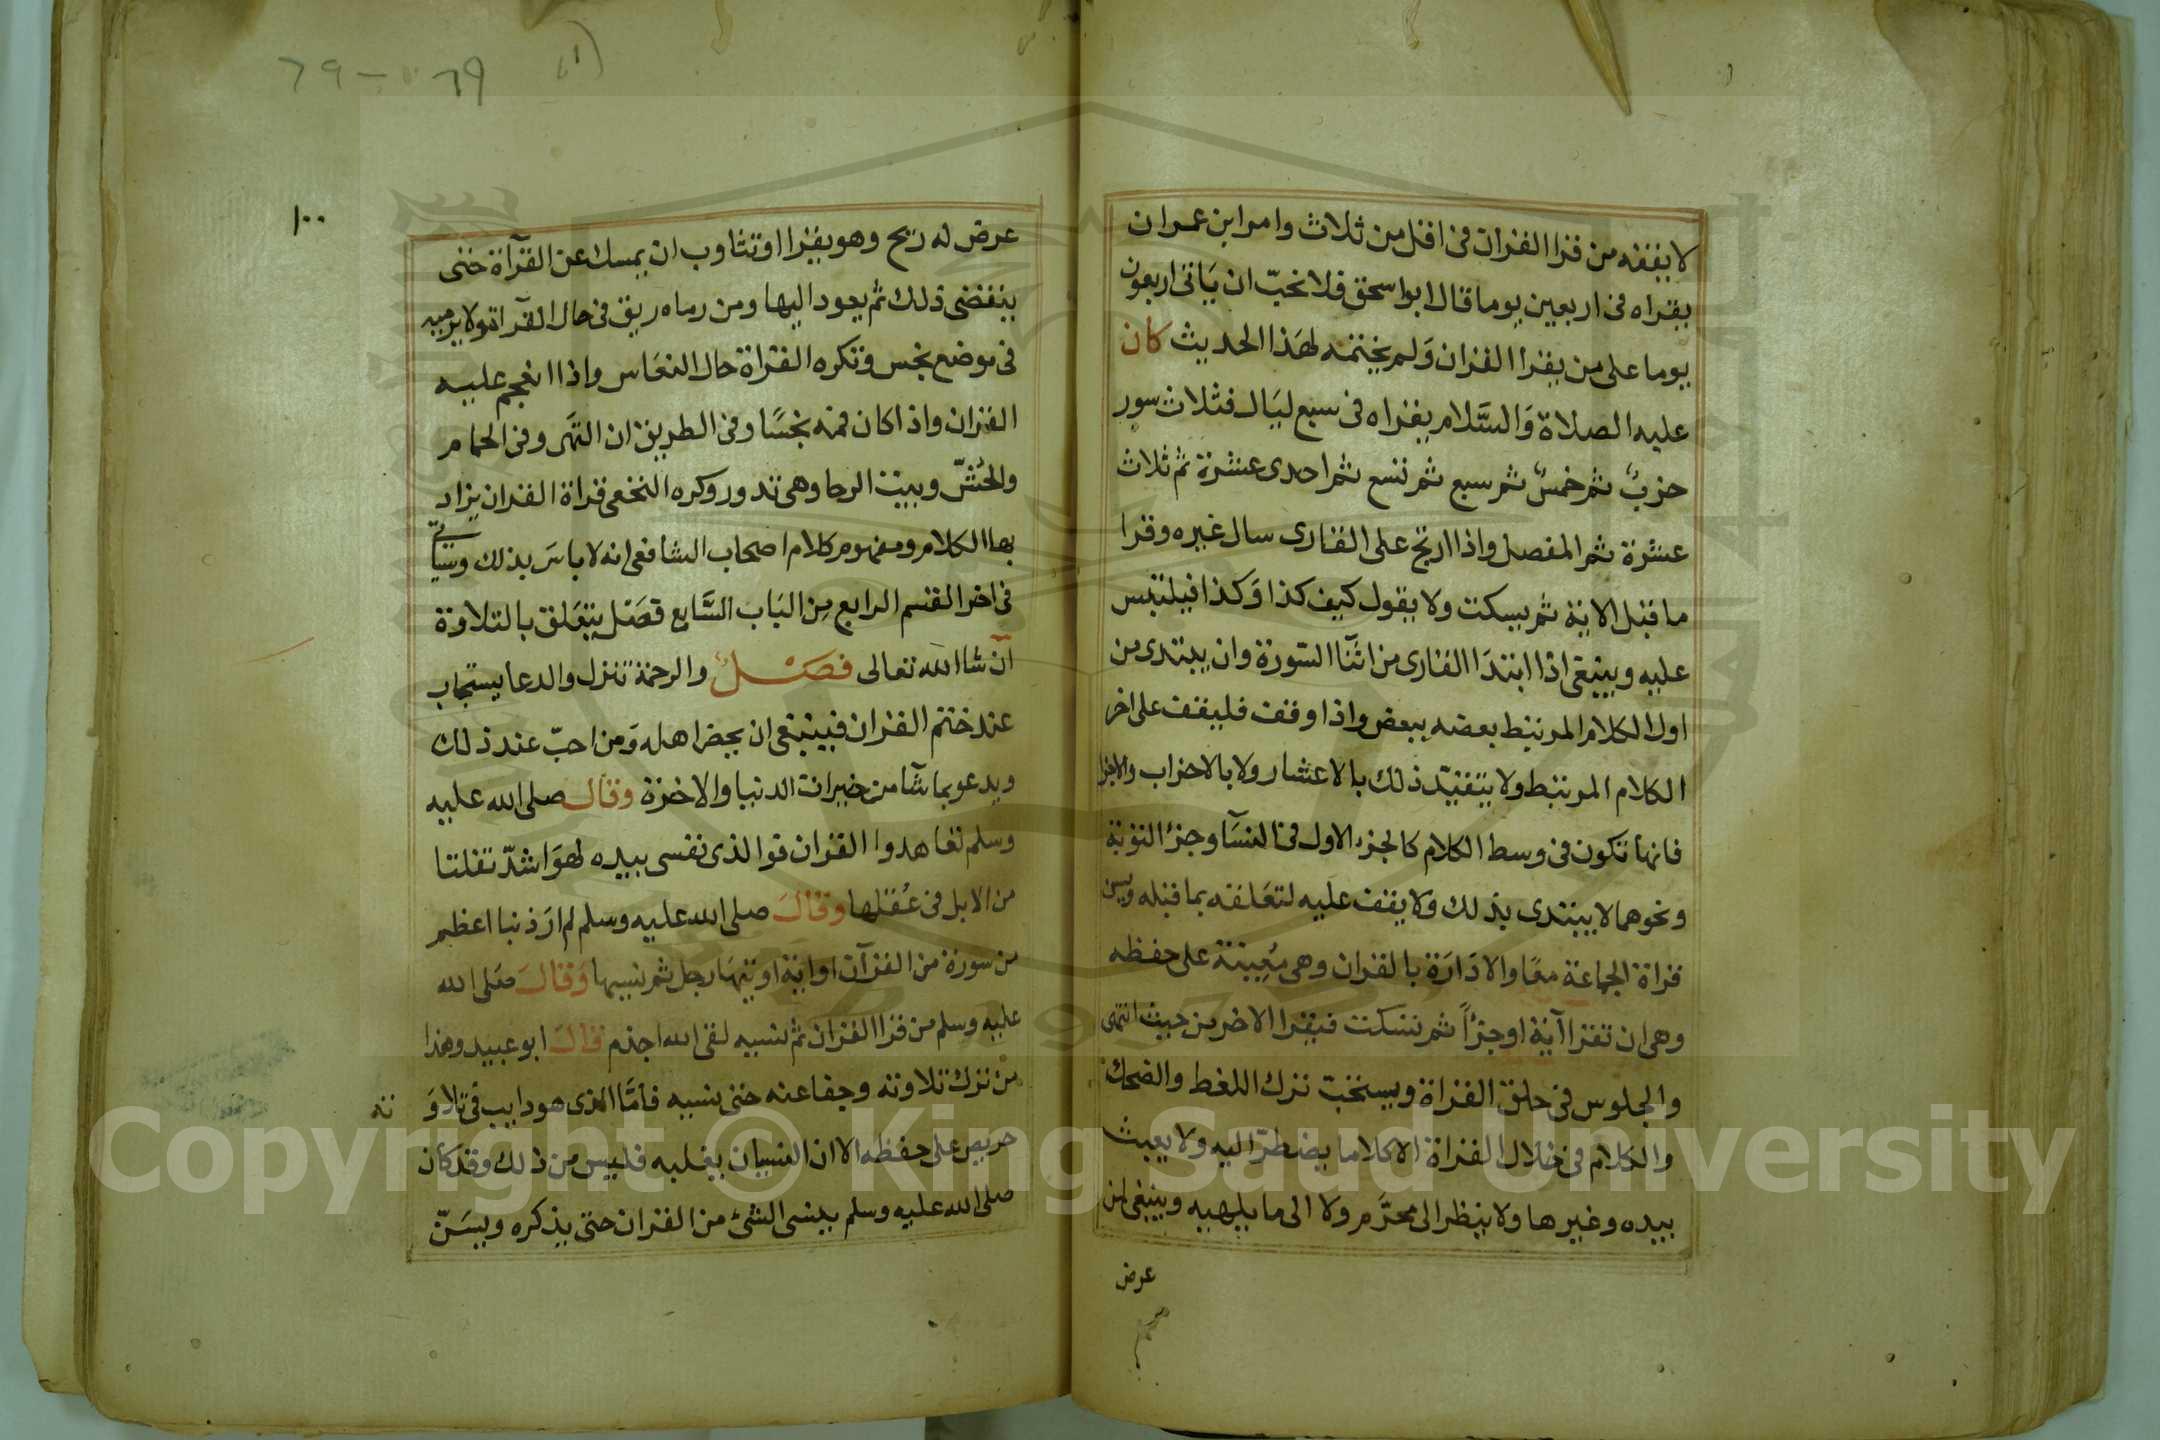 لا يفقه من قرا القران فى اقل من ثلاث وامر ابن عمر ان
يقراه فى اربعين يوما قال ابو اسحق فلا نحبّ ان يَاتى اربعون
يوما على من يقرأ القران وَلم يختمه لهَذا الحديث كان
عليه الصلاة وَالسَّلام يقراه فى سبع ليَال فثلاث سور
حزبٌ ثم خمسٌ ثم سبع ثم تسع ثم احدى عشرة ثم ثلاث
عشرة ثم المفصل واذا ارتج على القارى سال غيره وقرا
ما قبل الاية ثم يسكت ولا يقول كيف كذا وَكذا فيلتبس
عليه وينبغى اذا ابتدَا القارى من اثنآ السّورة وان يبتدى من
اول الكلام المرتبط بعضه ببعض واذا وقف فليقف على اخر
الكلام المرتبط ولا يتقيّد ذلك بالاعشار ولا بالاحزاب والاجزا
فانها تكون فى وسط الكلام كالجزء الاول فى النسَآ وجزء التوبة
ونحوهما لا يبتدى بذلك وَلا يقف عليه لتعَلقه بما قبله ويسن
قراة الجماعة معًا والادَارَة بالقران وهى مُعِينة على حفظه
وهى ان تقرا آية او جزأً ثم تسكت فيقرا الاخر من حيث انتهى
والجلوس فى حلق القراة ويستحب ترك اللغط والضحك
والكلام فى خلال القراة الا كلاما يضطرّ اليه ولا يعبث
بيده وغيرها ولا ينظر الى محرّم ولا الى ما يلهيه وينبغى لمن
عرض
١٠٠
عرض له ريح وهو يقرا او تثاوب ان يمسك عن القرآة حتى
ينقضى ذلك ثم يعود اليها ومن رماه ريق فى حال القرآة ولا يرميه
فى موضع نجس وتكره القراة حال النعَاس واذا انعجم عليه
القران واذا كان فمه نجسًا وفى الطريق ان التهى وفى الحمام
والحُشّ وبيت الرحا وهى تدور وكره النخعى قراة القران يراد
بها الكلام ومفهوم كلام اصحاب الشافعى انه لا باسَ بذلك وسيأتى
فى اخر القسم الرابع مِن البَاب السَّابع فصَل يتعَلق بالتلاوة
ان شا الله تعالى فصَلٌ والرحمة تنزل والدعا يستجاب
عند ختم القران فينبغى ان يحضر اهله وَمن احبّ عند ذلك
ويدعو بما شآ من خيرات الدنيا والاخرة وقال صلى الله عليه
وسلم تعاهدوا القران فوالذى نفسى بيده لهوَ اشدّ تفلتا
من الابل فى عُقلها وقالَ صلى الله عليه وسلم لم ارَ ذنبا اعظم
من سورة من القرآن او اية اوتيهَا رجل ثم نسيها وَقالَ صَلى الله
عليه وسلم من قرا القران ثم نسيه لقى الله اجذم قالَ ابو عبيد وهذا
من ترك تلاوته وجفا عنه حتى نسيه فامّا الذى هو دايب فى تلاوَ ته
حريص على حفظه الا ان النسيان يغلبه فليس من ذلك وقد كان
صلى الله عليه وسلم ينسى الشئ من القران حتى يذكره ويسَنّ
Copyright © King Saud University